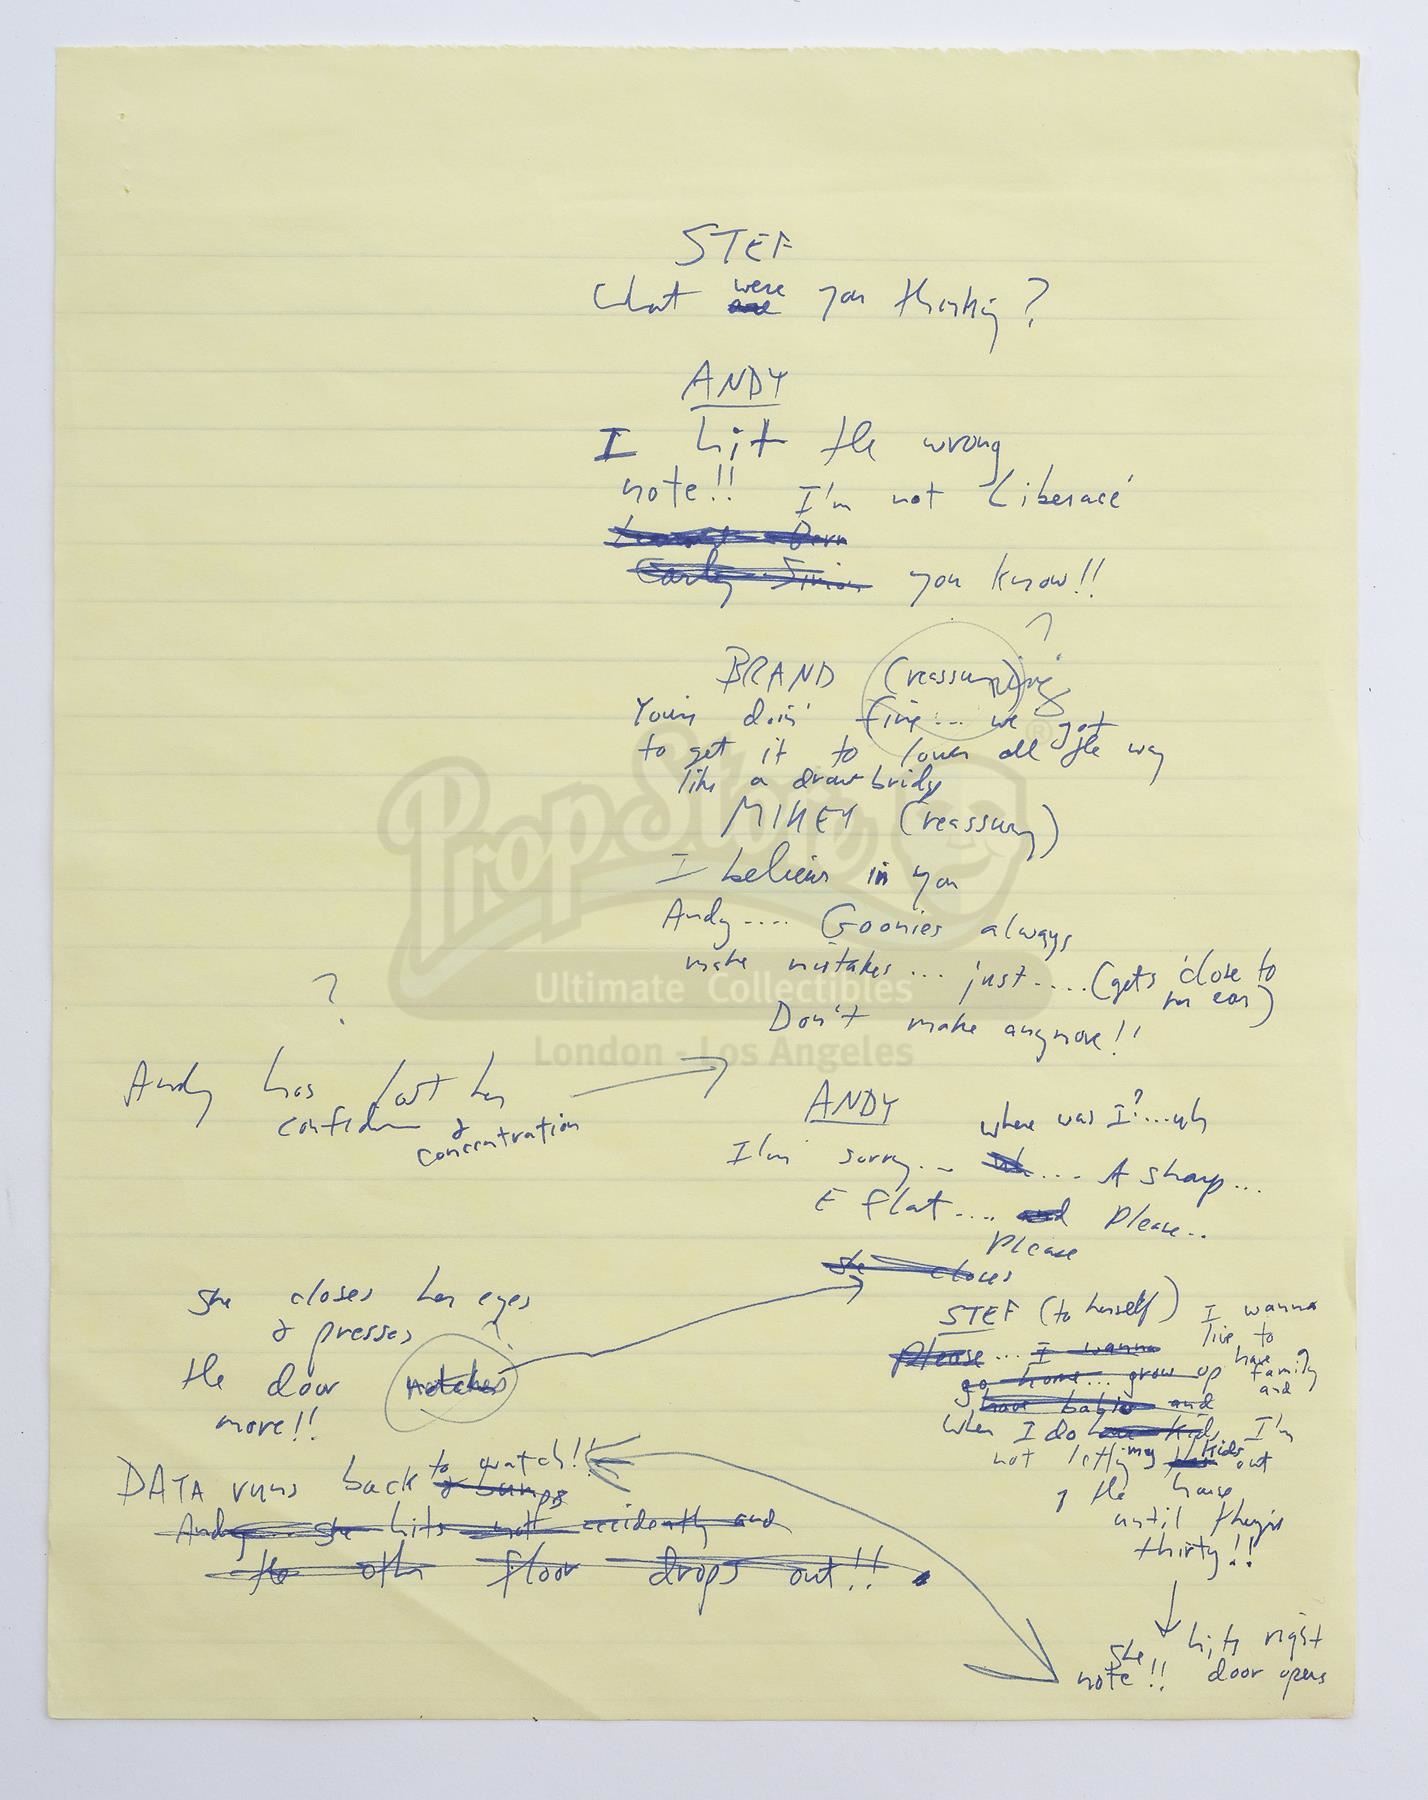 STEF
What were you thinking?
are
ANDY
I hit the wrong
note!! I'm not Liberacé
Carly Simon you know!!
?
BRAND (reassuring)
Your doin' fine... we got
to get it to lower all the way
like a drawbridge
MIKEY (reassuring)
I believe in you
Andy.... Goonies always
make mistakes... just..... (gets close to
her ear)
Don't make anymore!!
?
Andy has lost her
confidence &
concentration
ANDY
where was I?...uh
I'm sorry... uh.... A sharp...
E flat.... and Please..
Please
she closes
she closes her eyes
& presses
the door
more!!
STEF (to herself) I wanna
live to
have a
family
and
Please... I wanna
go home... grow up
have babies and
when I do have kids, I'm
not letting my kids out
of the house
until they're
thirty!!
DATA runs back to watch!!
& bumps
Andy... she hits note accidently and
the other floor drops out!!
she hits right
note!! door opens
PropStore
®
Ultimate Collectibles
London - Los Angeles